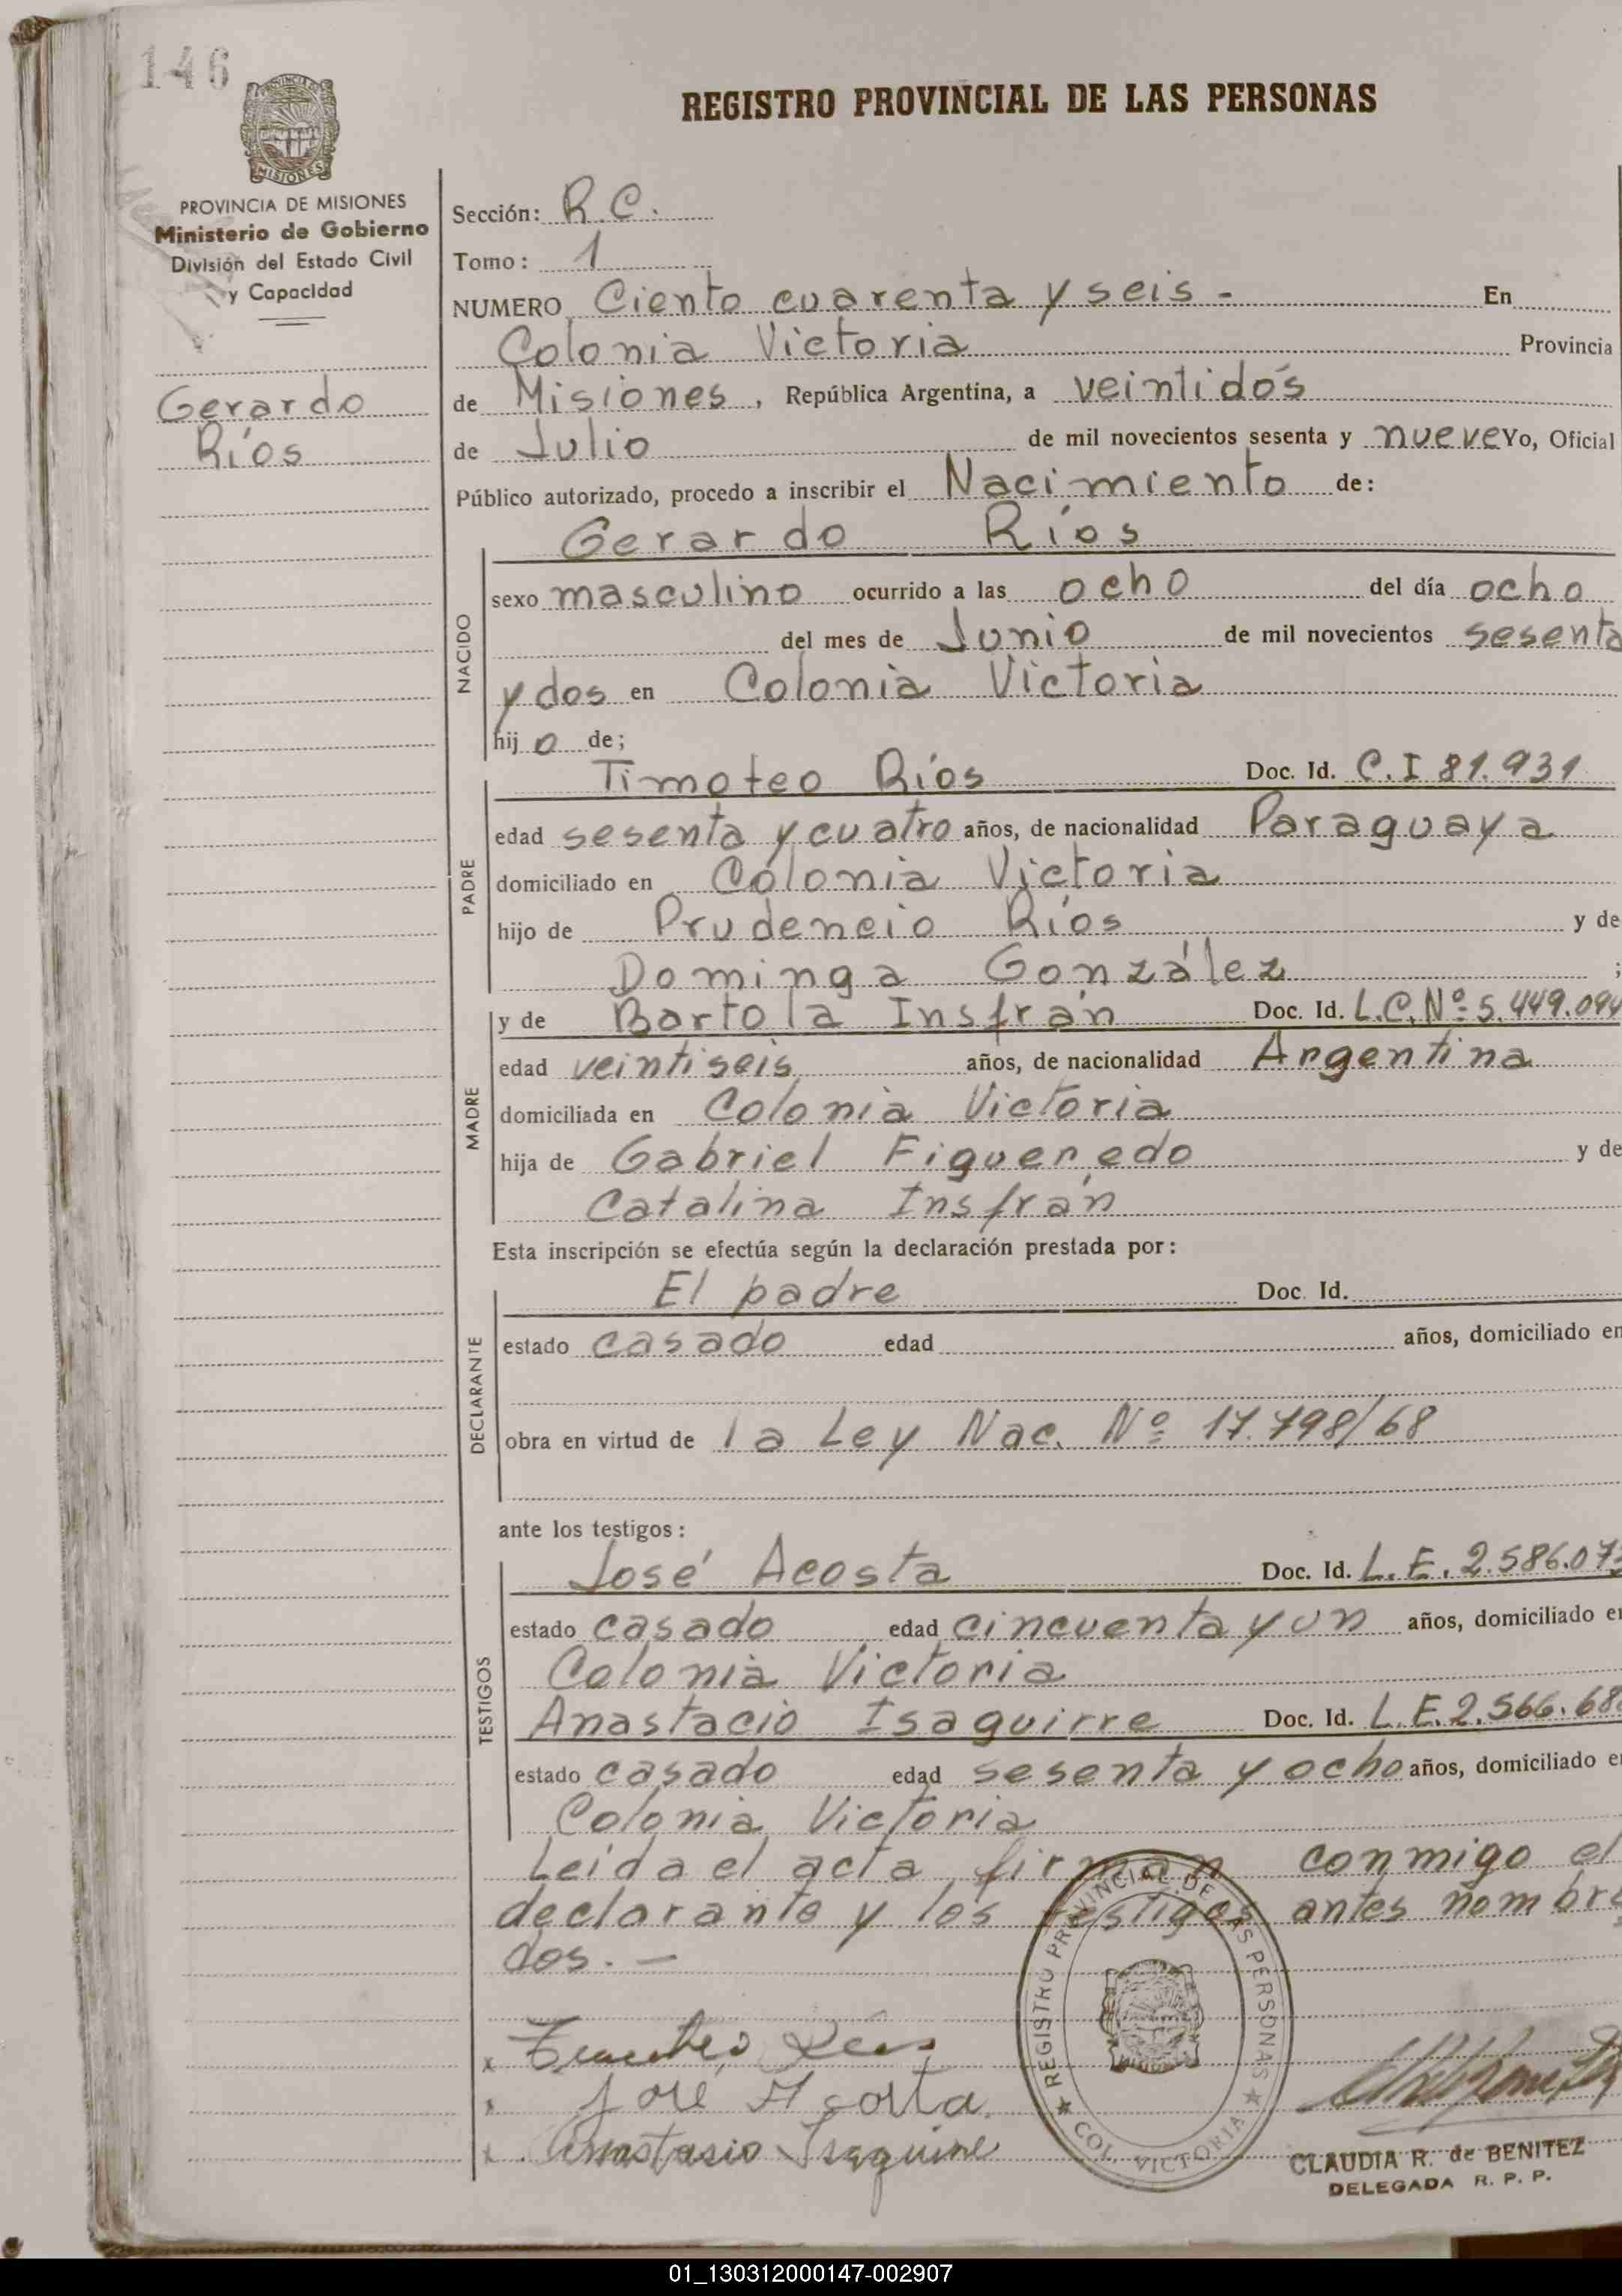 146
REGISTRO PROVINCIAL DE LAS PERSONAS
MISIONES
PROVINCIA DE MISIONES
Ministerio de Gobierno
División del Estado Civil
y Capacidad
Gerardo
Ríos
Sección: R.C.
Tomo: 1
NUMERO Ciento cuarenta y seis - En
Colonia Victoria Provincia
de Misiones, República Argentina, a veintidós
de Julio de mil novecientos sesenta y nueve Yo, Oficial
Público autorizado, procedo a inscribir el Nacimiento de:
Gerardo Ríos
NACIDO
sexo masculino ocurrido a las ocho del día ocho
del mes de Junio de mil novecientos sesenta
y dos en Colonia Victoria
hijo de;
PADRE
Timoteo Ríos Doc. Id. C.I 81.931
edad sesenta y cuatro años, de nacionalidad Paraguaya
domiciliado en Colonia Victoria
hijo de Prudencio Ríos y de
Dominga González ;
MADRE
y de Bartola Insfrán Doc. Id. L.C.Nº 5.449.094
edad veintiseis años, de nacionalidad Argentina
domiciliada en Colonia Victoria
hija de Gabriel Figueredo y de
Catalina Insfrán
Esta inscripción se efectúa según la declaración prestada por:
DECLARANTE
El padre Doc. Id.
estado casado edad años, domiciliado en
obra en virtud de la Ley Nac. Nº 17.798/68
ante los testigos:
TESTIGOS
José Acosta Doc. Id. L.E. 2.586.07
estado casado edad cincuenta y un años, domiciliado en
Colonia Victoria
Anastacio Isaguirre Doc. Id. L.E. 2.566.68
estado casado edad sesenta y ocho años, domiciliado en
Colonia Victoria
Leída el acta firman conmigo el
declarante y los testigos antes nombra
dos. -
x Timoteo Rios
x José Acosta
x Anastasio Isaguirre
REGISTRO PROVINCIAL DE LAS PERSONAS
COL. VICTORIA
CLAUDIA R. de BENITEZ
DELEGADA R. P. P.
01_130312000147-002907